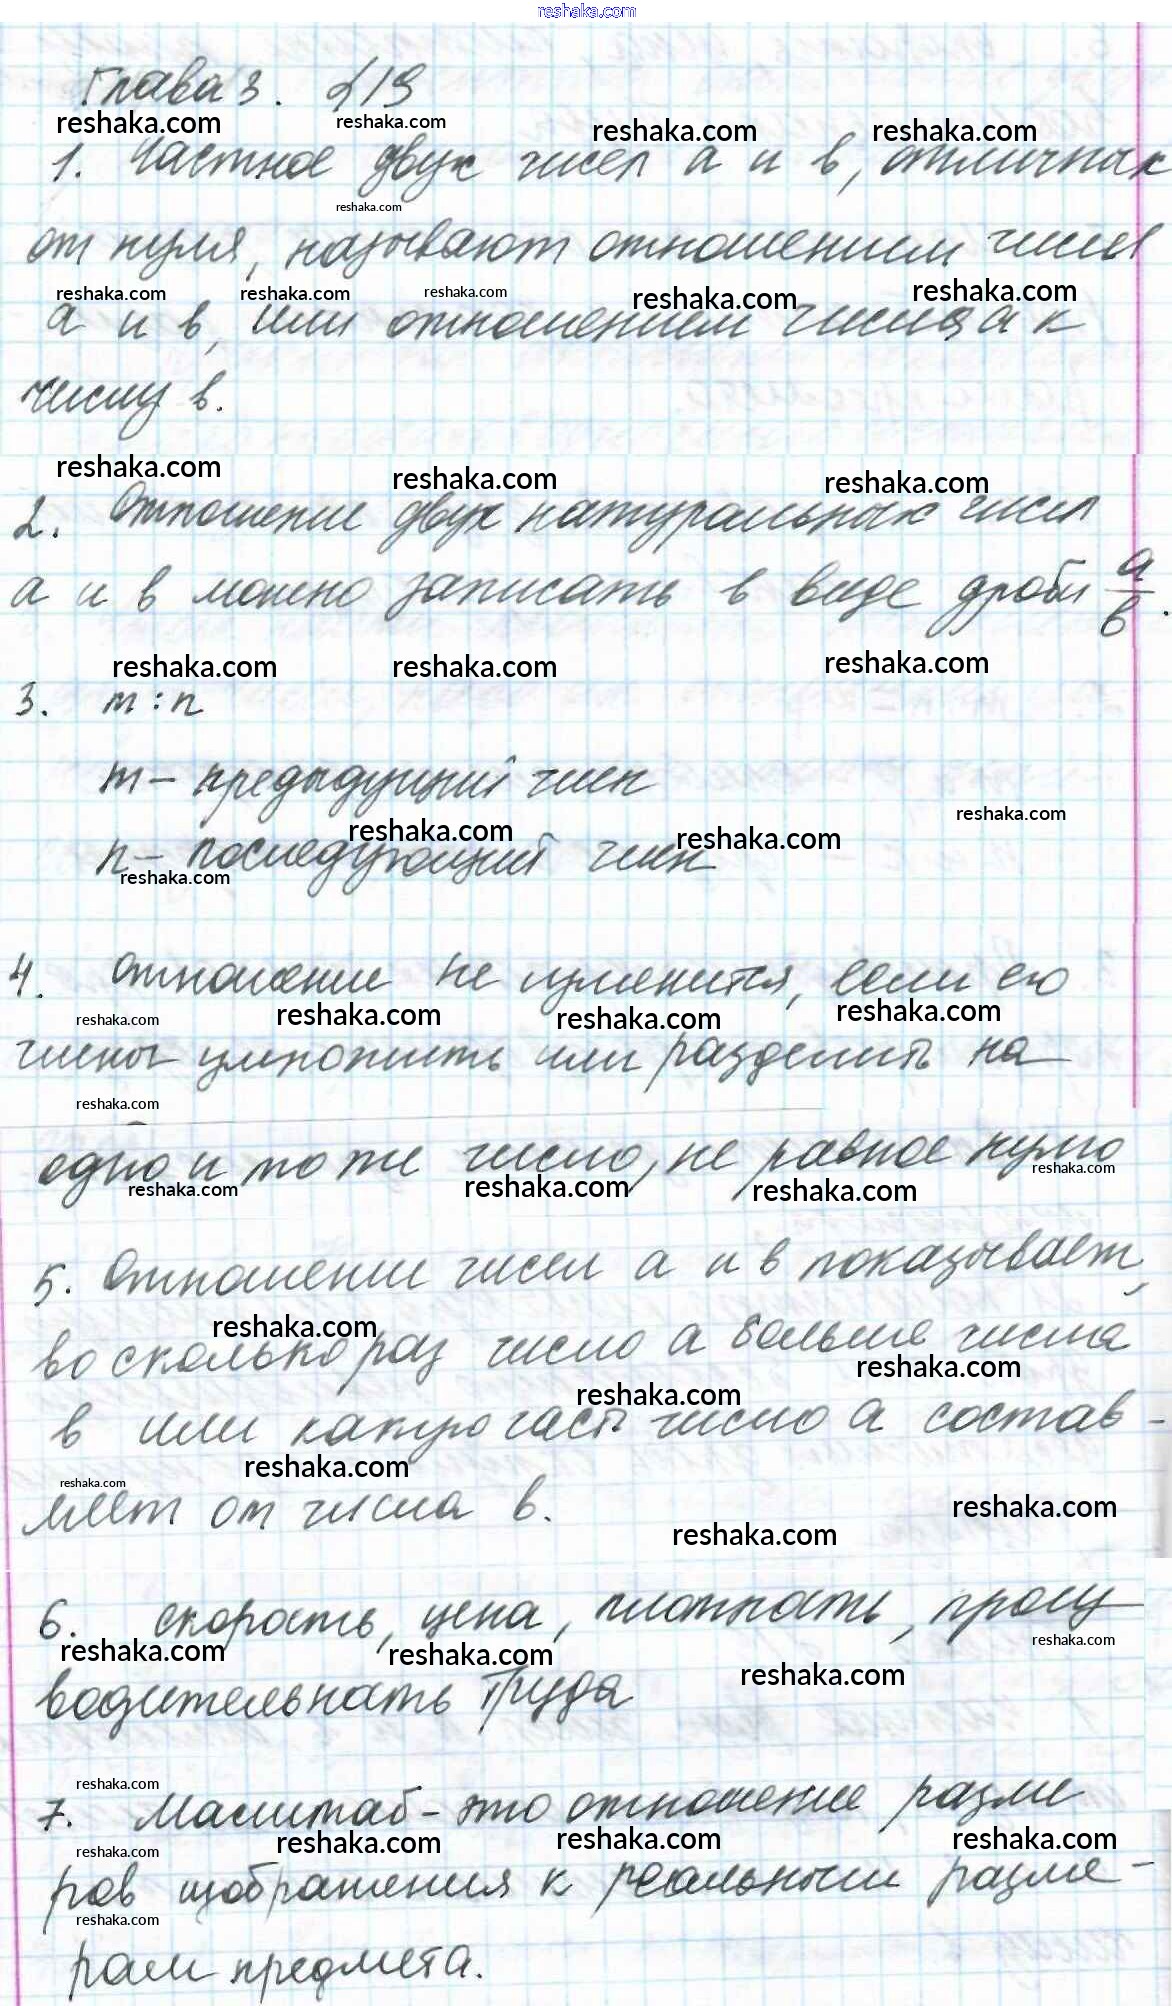 reshaka.com
Глава 3. §19
reshaka.com reshaka.com reshaka.com reshaka.com
1. Частное двух чисел a и в, отличных
reshaka.com
от нуля, называют отношением чисел
reshaka.com reshaka.com reshaka.com reshaka.com reshaka.com
a и в, или отношением числа a к
числу в.
reshaka.com reshaka.com reshaka.com
2. Отношение двух натуральных чисел
a и в можно записать в виде дроби a/в.
reshaka.com reshaka.com reshaka.com
3. m : n
m – предыдущий член
reshaka.com reshaka.com reshaka.com
n – последующий член
reshaka.com
4. Отношение не изменится, если его
reshaka.com reshaka.com reshaka.com reshaka.com
члены умножить или разделить на
reshaka.com
одно и то же число, не равное нулю
reshaka.com reshaka.com reshaka.com reshaka.com
5. Отношение чисел a и в показывает,
reshaka.com
во сколько раз число a больше числа
reshaka.com reshaka.com
в или какую часть число a состав-
reshaka.com reshaka.com
ляет от числа в.
reshaka.com reshaka.com
6. скорость, цена, плотность, произ
reshaka.com reshaka.com reshaka.com reshaka.com
водительность труда
reshaka.com
7. Масштаб – это отношение разме
reshaka.com reshaka.com reshaka.com reshaka.com
ров изображения к реальным разме-
reshaka.com
рам предмета.